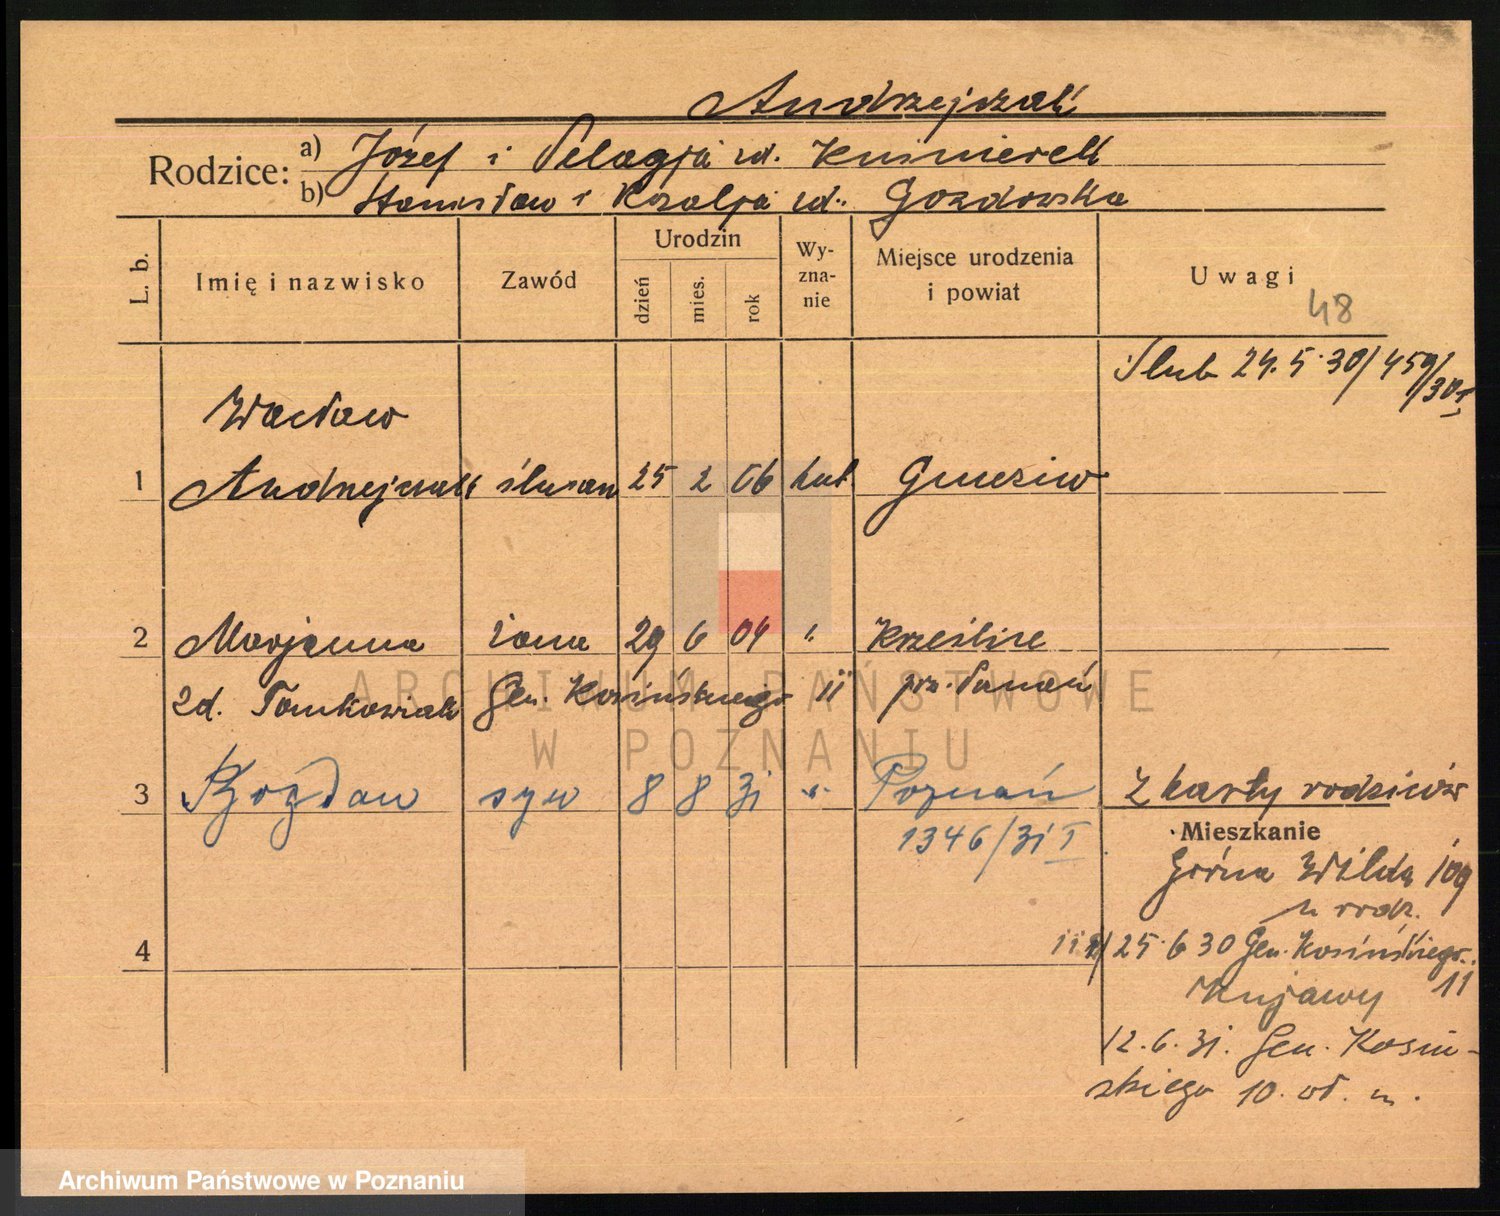 Andrzejczak
Rodzice: a) Józef i Pelagja zd. Kuśnierek
b) Stanisław i Rozalja zd. Gozdowska
L. b.
Imię i nazwisko
Zawód
Urodzin
dzień
mies.
rok
Wy-
zna-
nie
Miejsce urodzenia
i powiat
Uwagi
48
Ślub 24.5.30/459/30 I
Wacław
1 Andrzejczak ślusarz 25 2 06 kat. Gniezno
2 Marjanna żona 29 6 04 " Krześlice
zd. Tomkowiak Gen. Kosińskiego 11 pow. Poznań
3 Bogdan syn 8 8 31 " Poznań Z karty rodziców
1346/31 I
Mieszkanie
Górna Wilda 109
u rodz.
4
25.6 30 Gen. Kosińskiego
11
Kujawy
12.6.31. Gen. Kosiń-
skiego 10. wł. m.
ARCHIWUM PAŃSTWOWE
W POZNANIU
Archiwum Państwowe w Poznaniu